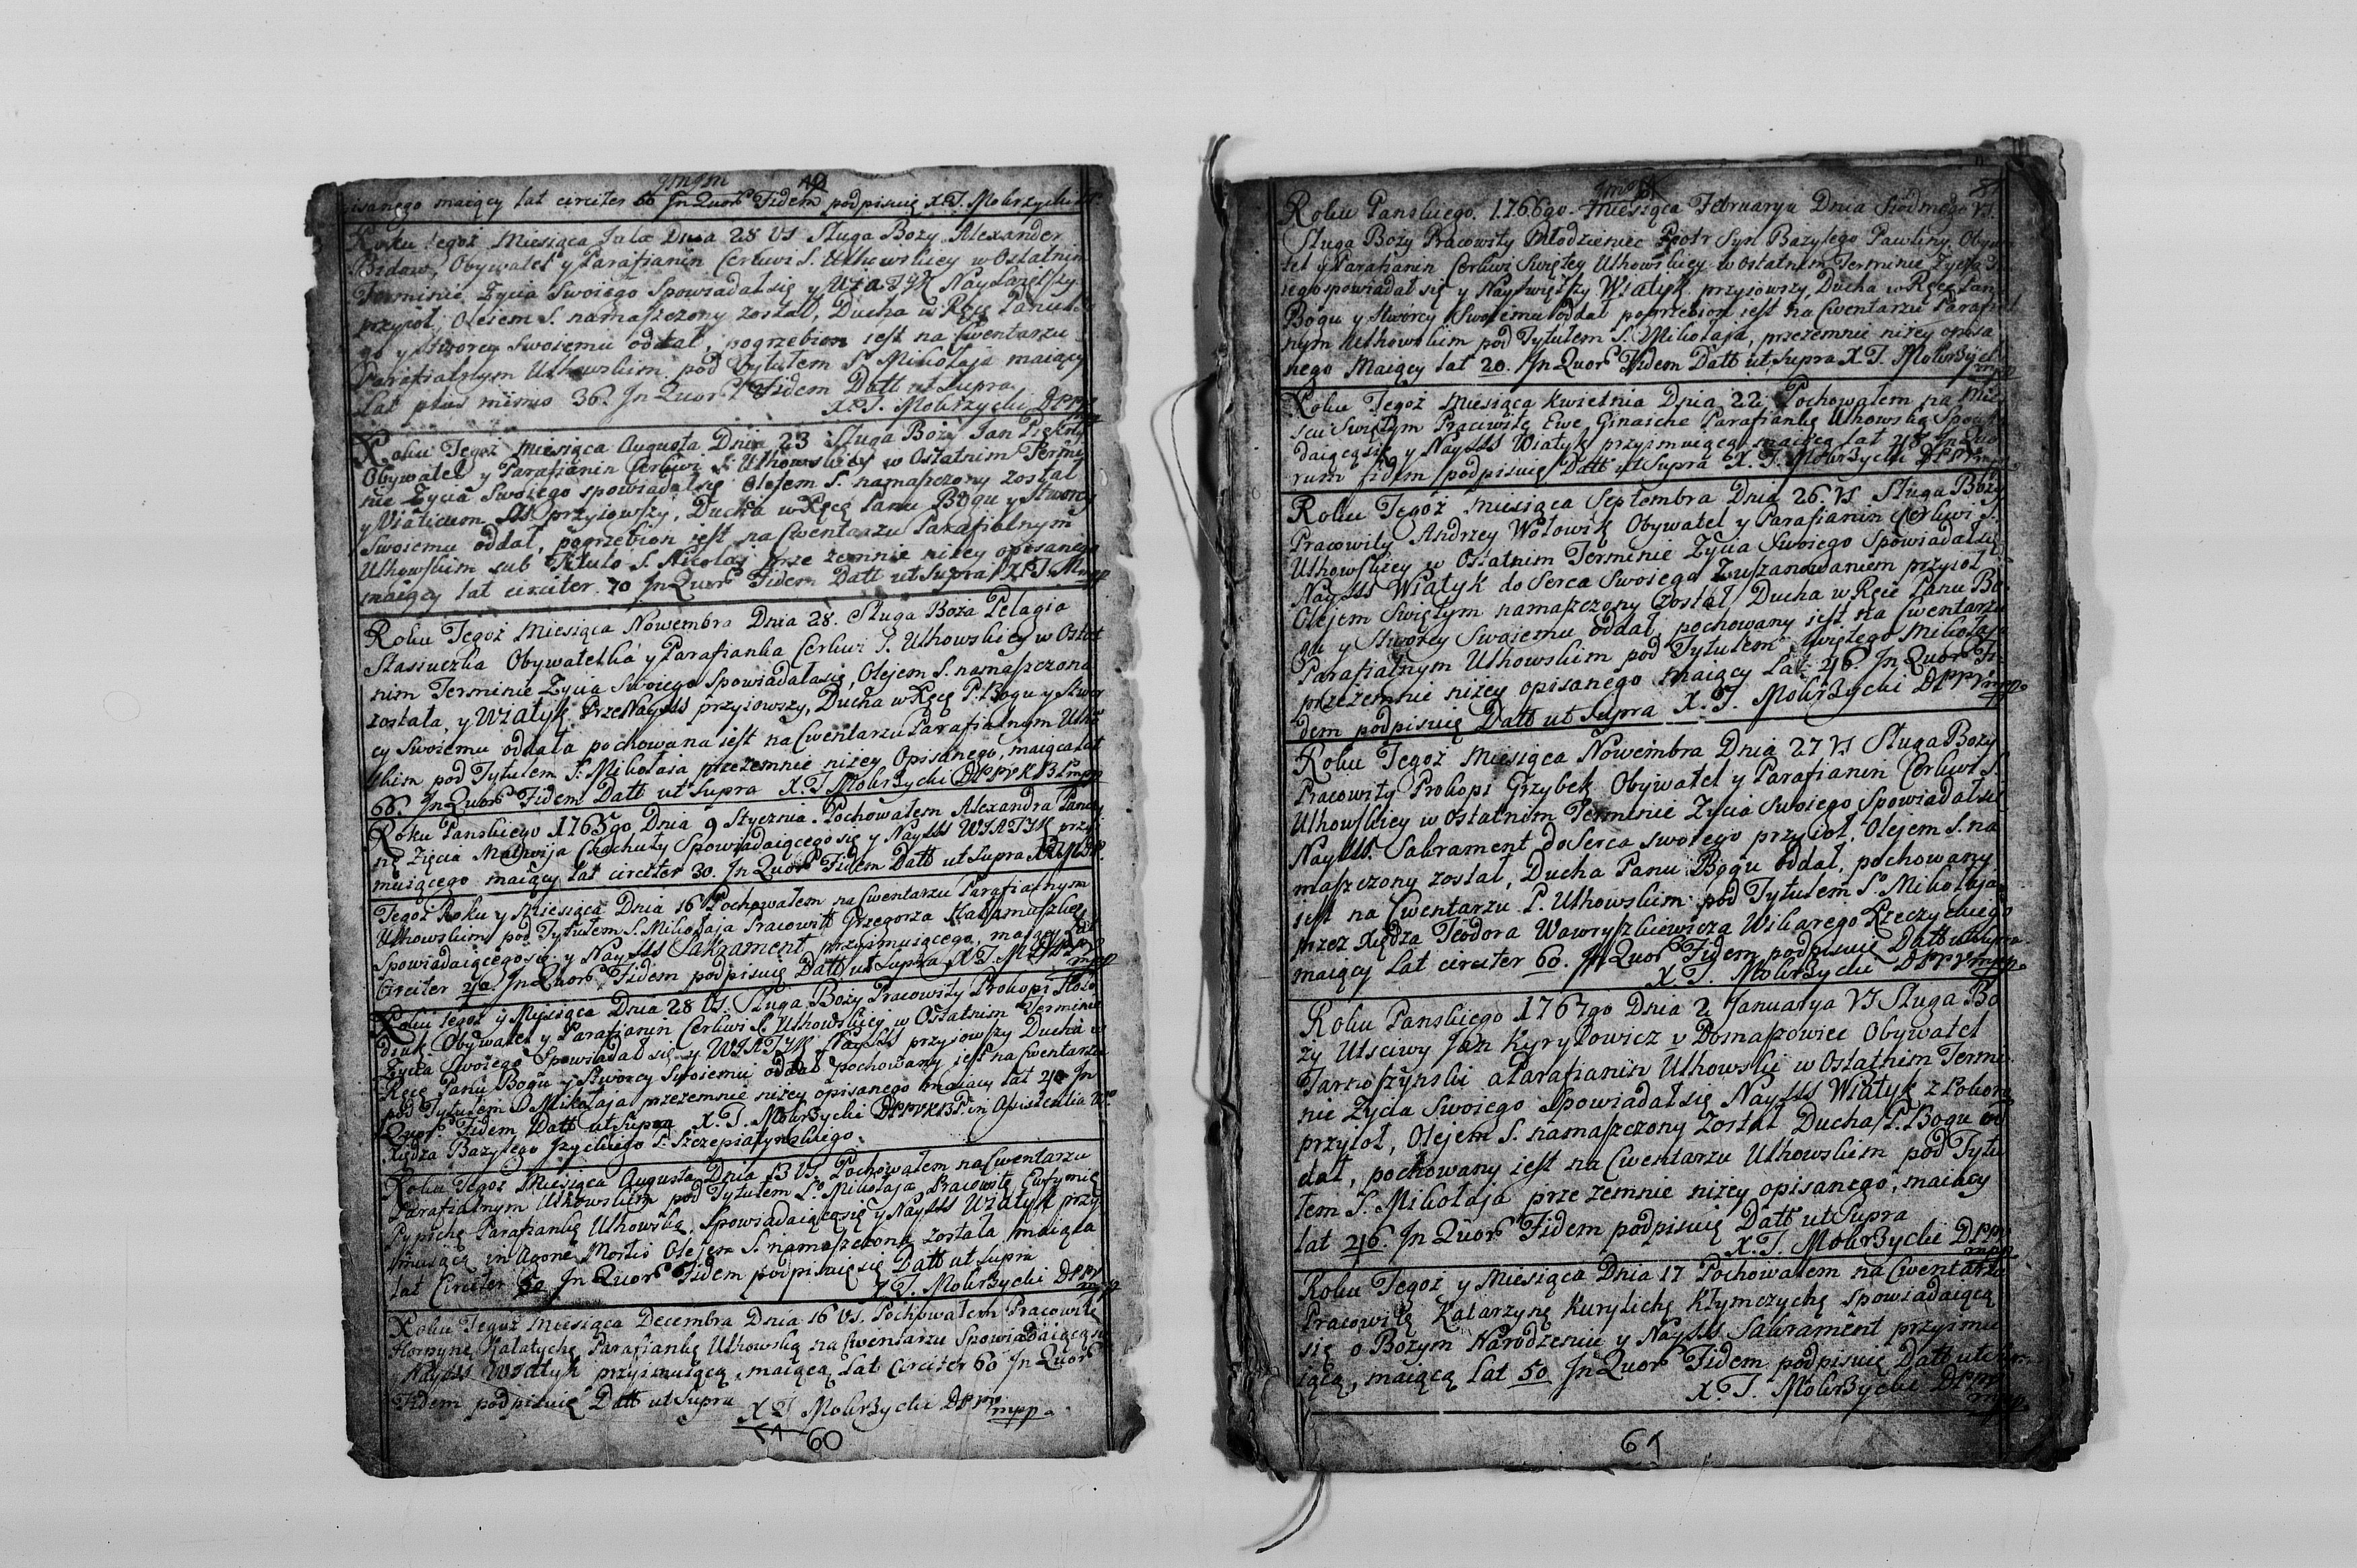 pisanego maiący lat circiter 66 Jn Quorũ Fidem podpisuię X.T. Mokrzycki
Roku tegoż Miesiąca Jula Dnia 28 VS Sługa Boży Alexander
Bidaw, Obywatel y Parafianin Cerkwi S. Uthowskiey w Ostatnim
Terminie Zycia Swoiego Spowiadał się y WiaTyk Nayswiętszy
przyioł, Olejem S. namaszczony został, Ducha w Ręce Panu
go y Stworcy Swoiemu oddał, pogrzebion iest na Cwentarzu
Parafialnym Uthowskim pod Tytułem S. Mikołaja maiący
Lat plus minus 36. Jn Quorũ Fidem Datt ut Supra
X.T. Mokrzycki DPPV
Roku Tegoż Miesiąca Augusta Dnia 23 Sługa Boży Jan
Obywatel y Parafianin Cerkwi S. Uthowskiey w Ostatnim Termi
nie Zycia Swoiego spowiadał się Olejem S. namaszczony został
y Viaticum SSS przyiowszy, Ducha w Ręce Panu Bogu y Stworcy
Swoiemu oddał, pogrzebion iest na Cwentarzu Parafialnym
Uthowskim sub Titulo S. Nicolai prze zemnie niżey opisanego
maiący lat circiter 70 Jn Quorũ Fidem Datt ut Supra X.T. M mpp
Roku Tegoż Miesiąca Nowembra Dnia 28. Sługa Boża Pelagia
Stasiuczka Obywatelka y Parafianka Cerkwi S. Uthowskiey w Ostat
nim Terminie Zycia Swoiego Spowiadała się, Olejem S. namaszczona
została, y Wiatyk PrzeNaySSS przyiowszy, Ducha w Ręce P. Bogu y Stwor
cy Swoiemu oddała pochowana iest na Cwentarzu Parafialnym Utho
wskim pod Tytułem S. Mikołaja przezemnie niżey Opisanego, maiąca lat
66. Jn Quorũ Fidem Datt ut Supra X.T Mokrzycki DPPVKBS mpp
Roku Panskiego 1765go Dnia 9 Stycznia. Pochowałem Alexandra
ną Zięcia Matwija Chachuły Spowiadaiącego się y NaySSS WIATYK przyi
muiącego maiący lat circiter 30. Jn Quorũ Fidem Datt ut Supra
Tegoż Roku y Miesiąca Dnia 16 Pochowałem na Cwentarzu Parafialnym
Uthowskim pod Tytułem S. Mikołaja Pracowit Grzegorza
Spowiadaiącego się y NaySSS Sakrament przyimuiącego, maiący Lat
Circiter 40. Jn Quorũ Fidem podpisuię Datt ut Supra X.T. M mpp
Roku tegoż y Miesiąca Dnia 28 VS. Sługa Boży Pracowity Prokopi Koło
dziuk Obywatel y Parafianin Cerkwi S. Uthowskiey w Ostatnim Terminie
Zycia Swoiego Spowiadał się y WIATYK NaySSS przyiowszy Ducha w
Ręce Panu Bogu y Stworcy Swoiemu oddał pochowany iest na Cwentarzu
pod Tytułem S Mikołaja przezemnie niżey opisanego maiący lat 40 Jn
Quorũ Fidem Datt ut Supra X.T. Mokrzycki DPPVKBS. in Assistentia
Xiędza Bazylego Jzyckiego P. Szczepiatynskiego
Roku Tegoż Miesiąca Augusta Dnia 13 VS. Pochowałem na Cwentarzu
Parafialnym Uthowskim pod Tytułem So Mikołaja Pracowitę Ewfymię
Pypichę Parafiankę Uthowską, Spowiadaiącąsię y NaySSS Wiatyk przy
imuiąc in Agone Mortis Olejem S. namaszczona została maiąca
lat Circiter 50. Jn Quorũ Fidem podpisuię się Datt ut Supra
X T. Mokrzycki DPPV mpp
Roku Tegoż Miesiąca Decembra Dnia 16 VS. Pochowałem Pracowitę
Horpynę Kałatychę Parafiankę Uthowską na Cwentarzu Spowiadaiącąsię
NaySSS Wiatyk przyimuiącą, maiącą lat Circiter 60 Jn Quorũ
Fidem podpisuię Datt ut Supra X T Mokrzycki DPPV mpp.
60
Roku Panskiego. 1766go. Miesiąca Februarya Dnia Siodmego VS.
Sługa Boży Pracowity Młodzieniec Piotr Syn Bazylego Pawliny, Obywa
tel y Parafianin Cerkwi Swiętey Uthowskiey w Ostatnim Terminie Zycia Swo
iego spowiadał się y Nayswiętszy Wiatyk przyiowszy, Ducha w Ręce Panu
Bogu y Stworcy Swoiemu oddał pogrzebion iest na Cwentarzu Parafial
nym Uthowskim pod Tytułem S. Mikołaja, przezemnie niżey opisa
nego Maiący lat 20. Jn Quorũ Fidem Datt ut Supra X.T. Mokrzycki mpp
Roku Tegoż Miesiąca Kwietnia Dnia 22 Pochowałem na Miey
scu Swiętym Pracowitę Ewę Ginaichę Parafiankę Uthowską Spowia
daiącąsię y NaySSS Wiatyk przyimuiącą maiącą lat 48. Jn Quo
rum fidem podpisuię Datt ut Supra X. T. Mokrzycki DPPV mpp
Roku Tegoż Miesiąca Septembra Dnia 26. VS Sługa Boży
Pracowity Andrzey Wołowik Obywatel y Parafianin Cerkwi S.
Uthowskiey w Ostatnim Terminie Zycia Swoiego Spowiadał się
NaySSS Wiatyk do Serca Swoiego Zuszanowaniem przyioł
Olejem Swiętym namaszczony został, Ducha w Ręce Panu Bo
gu y Stworcy Swoiemu oddał, pochowany iest na Cwentarzu
Parafialnym Uthowskim pod Tytułem Swiętego Mikołaja
przezemnie niżey opisanego maiący Lat 46. Jn Quorũ Fi
dem podpisuię Datt ut Supra X. T. Mokrzycki DPPV mpp.
Roku Tegoż Miesiąca Nowembra Dnia 27 VS Sługa Boży
Pracowity Prokopi Grzybek Obywatel y Parafianin Cerkwi S.
Uthowskiey w Ostatnim Terminie Zycia Swoiego Spowiadał się
NaySSS. Sakrament do Serca swoiego przyioł, Olejem S. na
maszczony został, Ducha Panu Bogu oddał, pochowany
iest na Cwentarzu P. Uthowskim pod Tytułem So Mikołaja
przez Xiędza Teodora Wawryszkiewicza Wikarego Rzeczyckiego
maiący Lat circiter 60. Jn Quorũ Fidem podpisuię Datt ut Supra
X. T. Mokrzycki DPPV mpp.
Roku Panskiego 1767go Dnia 2 Januarya VS Sługa Bo
ży Utsciwy Jan Kyryłowicz v Domaszowiec Obywatel
Tarnoszynski a Parafianin Uthowski w Ostatnim Termi
nie Zycia Swoiego Spowiadał się NaySSS Wiatyk z Pokorą
przyioł, Olejem S. namaszczony został Ducha P. Bogu od
dał, pochowany iest na Cwentarzu Uthowskim pod Tytu
łem S. Mikołaja prze zemnie niżey opisanego, maiący
lat 46. Jn Quorũ Fidem podpisuię Datt ut Supra
X. T. Mokrzycki DPPV mpp.
Roku Tegoż y Miesiąca Dnia 17 Pochowałem na Cwentarzu
Pracowitę Katarzynę Kurylichę Kłymczychę Spowiadaiącą
się o Bożym Narodzeniu y NaySSS Sakrament przyimu
iącą, maiącą Lat 50 Jn Quorũ Fidem podpisuię Datt ut Supr.
X. T. Mokrzycki DPPV mpp.
61